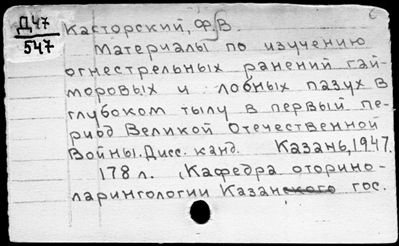 Д47
547
Касторский, Ф.В.
Материалы по изучению
огнестрельных ранений гай-
моровых и лобных пазух в
глубоком тылу в первый пе-
риод Великой Отечественной
Войны. Дисс. канд. Казань, 1947.
178 л. (Кафедра оторино-
ларингологии Казанского гос.